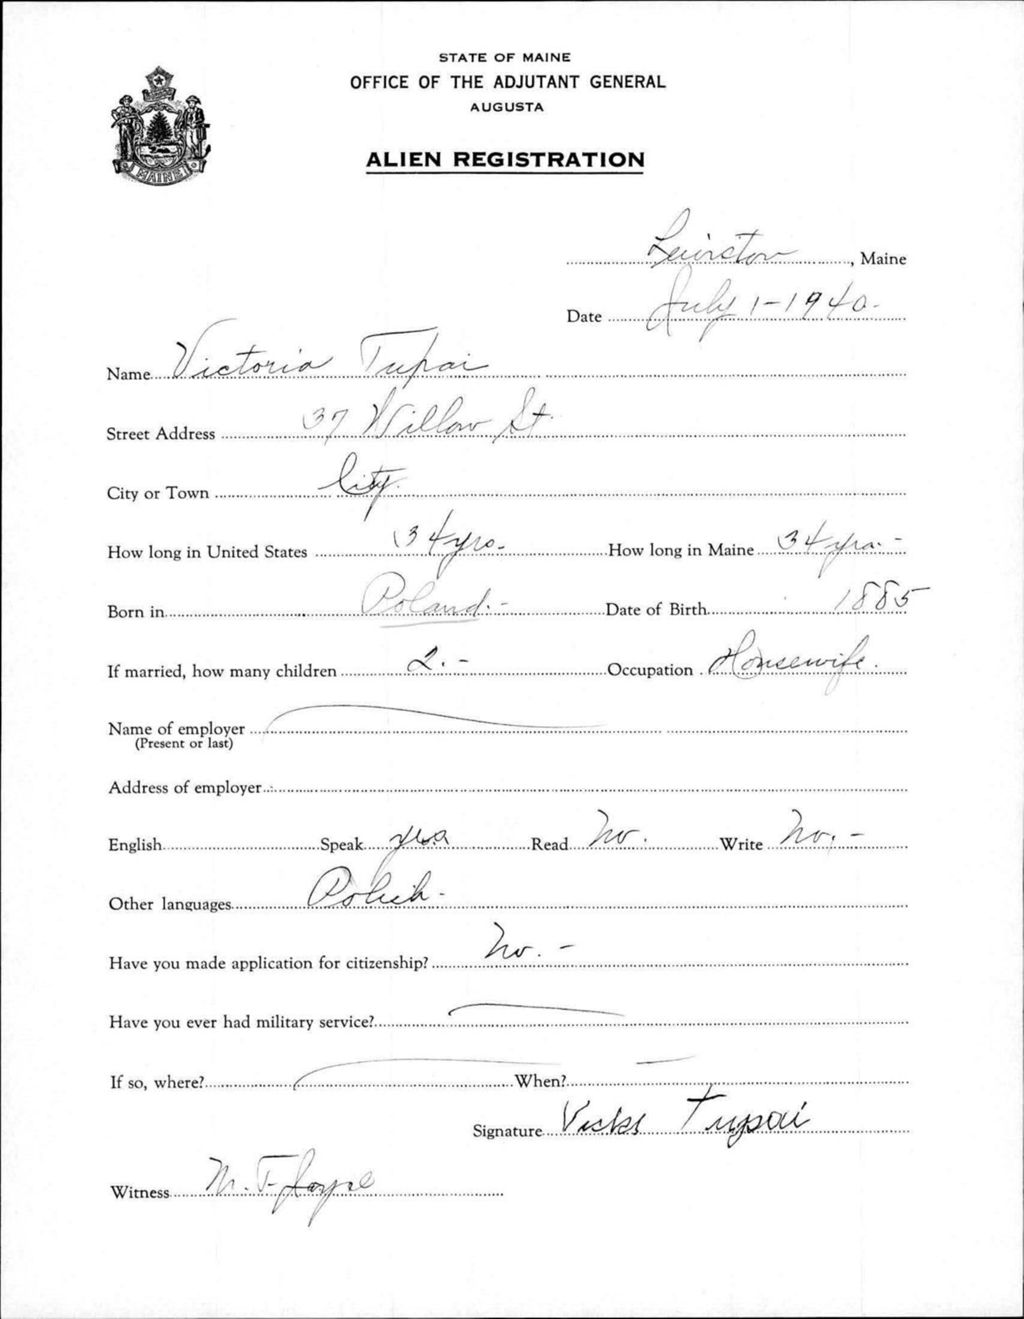 STATE OF MAINE
OFFICE OF THE ADJUTANT GENERAL
AUGUSTA
ALIEN REGISTRATION
MAINE
Lewiston, Maine
Date July 1-1940-
Name Victoria Tupai
Street Address 37 Willow St.
City or Town City.
How long in United States 34 yrs- How long in Maine 34 yrs.-
Born in Poland.- Date of Birth 1885
If married, how many children 2.- Occupation Housewife.
Name of employer
(Present or last)
Address of employer
English Speak yes Read No. Write No.-
Other languages Polish-
Have you made application for citizenship? No.-
Have you ever had military service?
If so, where? When? —
Signature Tupai
Witness M. F. Joyce